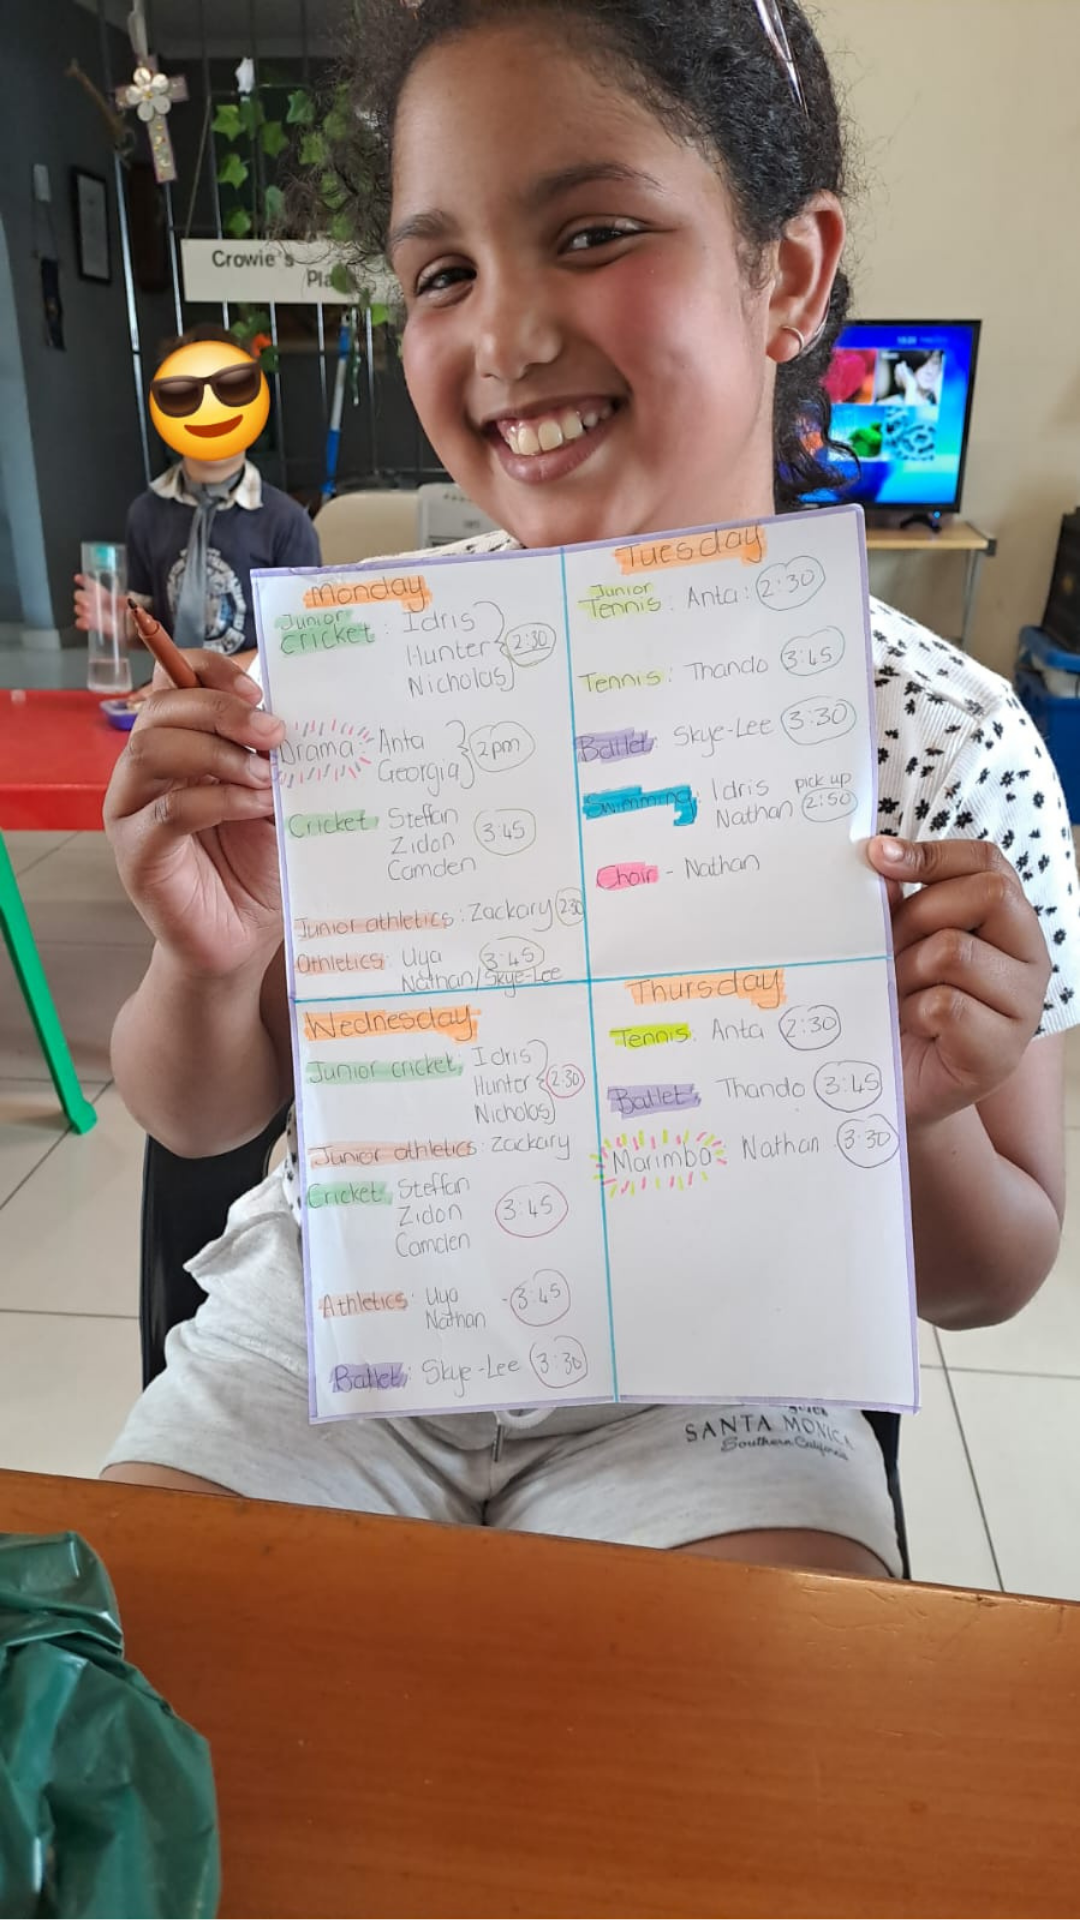 Crowie's
Monday
Junior
cricket: Idris
Hunter 2:30
Nicholas
Drama: Anta
Georgia 2pm
Cricket: Steffan
Zidon 3:45
Camden
Junior athletics: Zackary 2:30
Athletics: Uya 3:45
Nathan/Skye-Lee
Tuesday
Junior
Tennis: Anta: 2:30
Tennis: Thando 3:45
Ballet: Skye-Lee 3:30
Swimming: Idris pick up
Nathan 2:50
Choir - Nathan
Wednesday
Junior cricket: Idris
Hunter 2:30
Nicholas
Junior athletics: Zackary
Cricket: Steffan
Zidon 3:45
Camden
Athletics: Uya - 3:45
Nathan
Ballet: Skye-Lee 3:30
Thursday
Tennis: Anta 2:30
Ballet: Thando 3:45
Marimba: Nathan 3:30
SANTA MONICA
Southern California